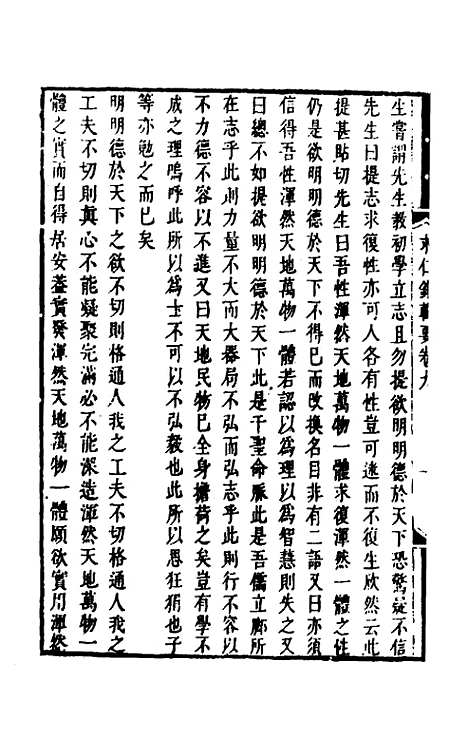 求仁錄輯要卷九
一
生嘗謂先生教初學立志且勿提欲明明德於天下恐驚疑不信
先生曰提志求復性亦可人各有性豈可遂而不復生欣然云此
提甚貼切先生曰吾性渾然天地萬物一體求復渾然一體之性
仍是欲明明德於天下不得已而改換名目非有二語又曰亦須
信得吾性渾然天地萬物一體若認以為理以為智慧則失之又
曰總不如提欲明明德於天下此是千聖命脈此是吾儒立腳所
在志乎此則力量不大而大器局不弘而弘志乎此則行不容以
不力德不容以不進又曰天地民物已全身擔荷之矣豈有學不
成之理嗚呼此所以為士不可以不弘毅也此所以思狂狷也子
等亦勉之而已矣
明明德於天下之欲不切則格通人我之工夫不切格通人我之
工夫不切則真心不能凝聚完滿必不能深造渾然天地萬物一
體之實而自得居安養實發渾然天地萬物一體願欲實用渾然